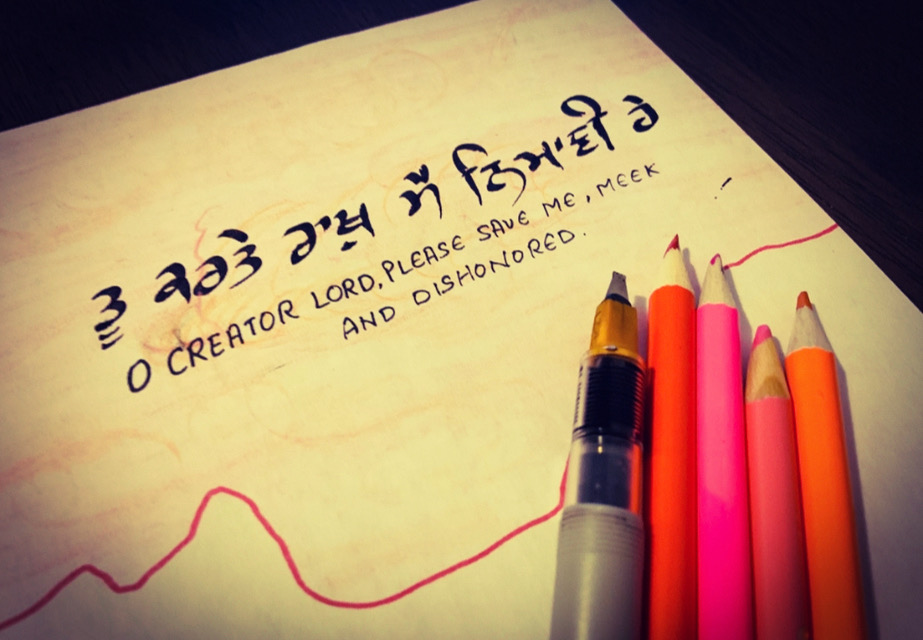 ਤੂ ਕਰਤੇ ਰਾਖੁ ਮੈ ਨਿਮਾਣੀ ਹੇ
O CREATOR LORD, PLEASE SAVE ME, MEEK
AND DISHONORED.